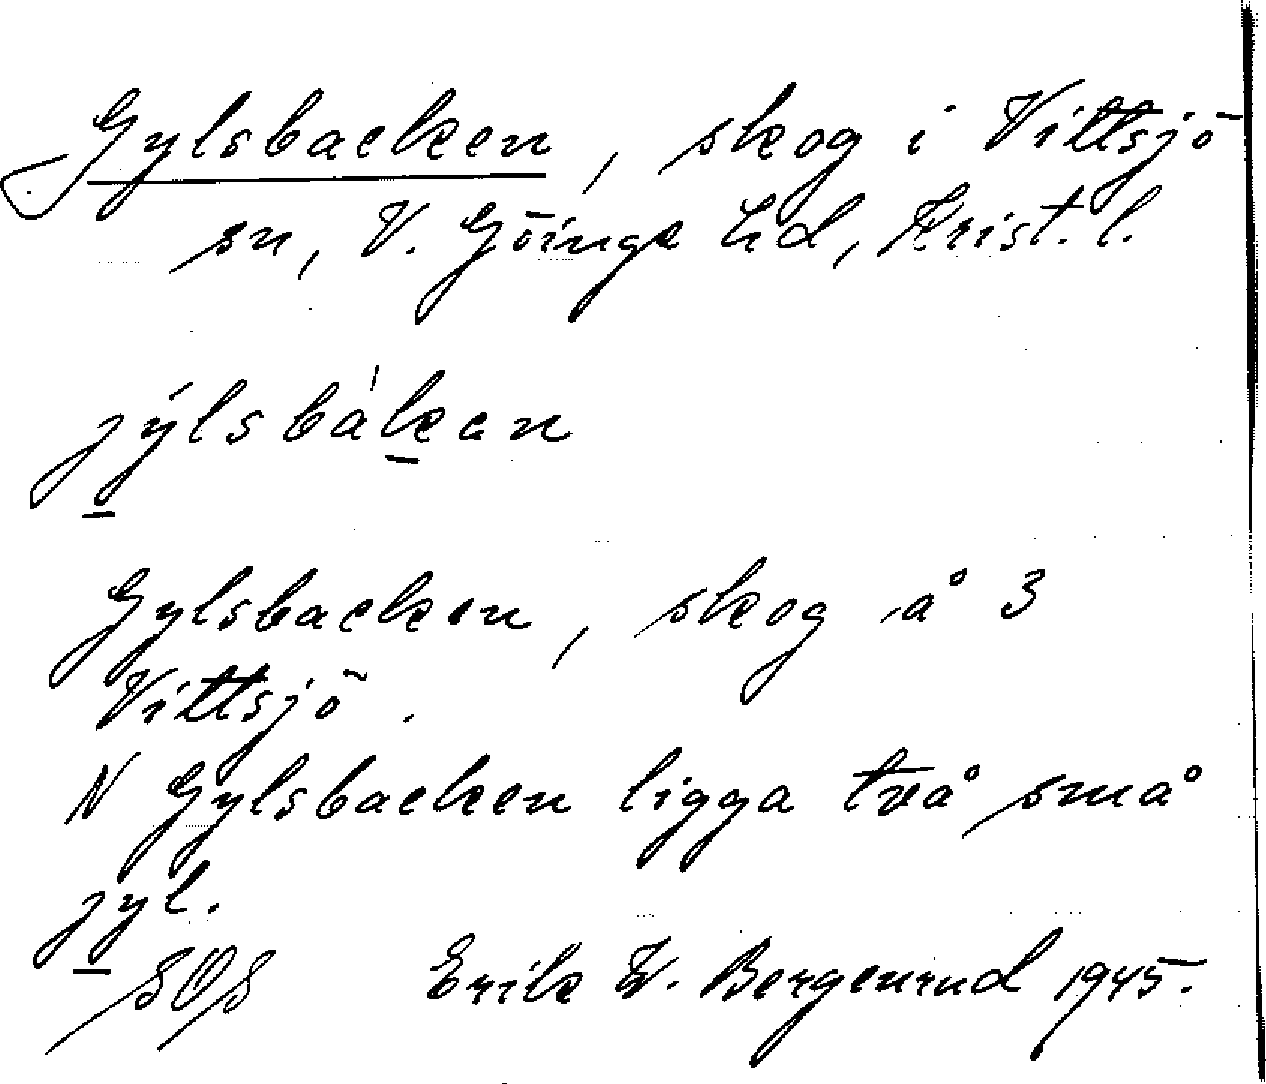 Gylsbacken, skog i Vittsjö
sn, V. Göinge hd, Krist. l.
jýlsbàken
Gylsbacken, skog å 3
Vittsjö.
N Gylsbacken ligga två små
jyl.
SOS Erik W. Bergenrud 1945.